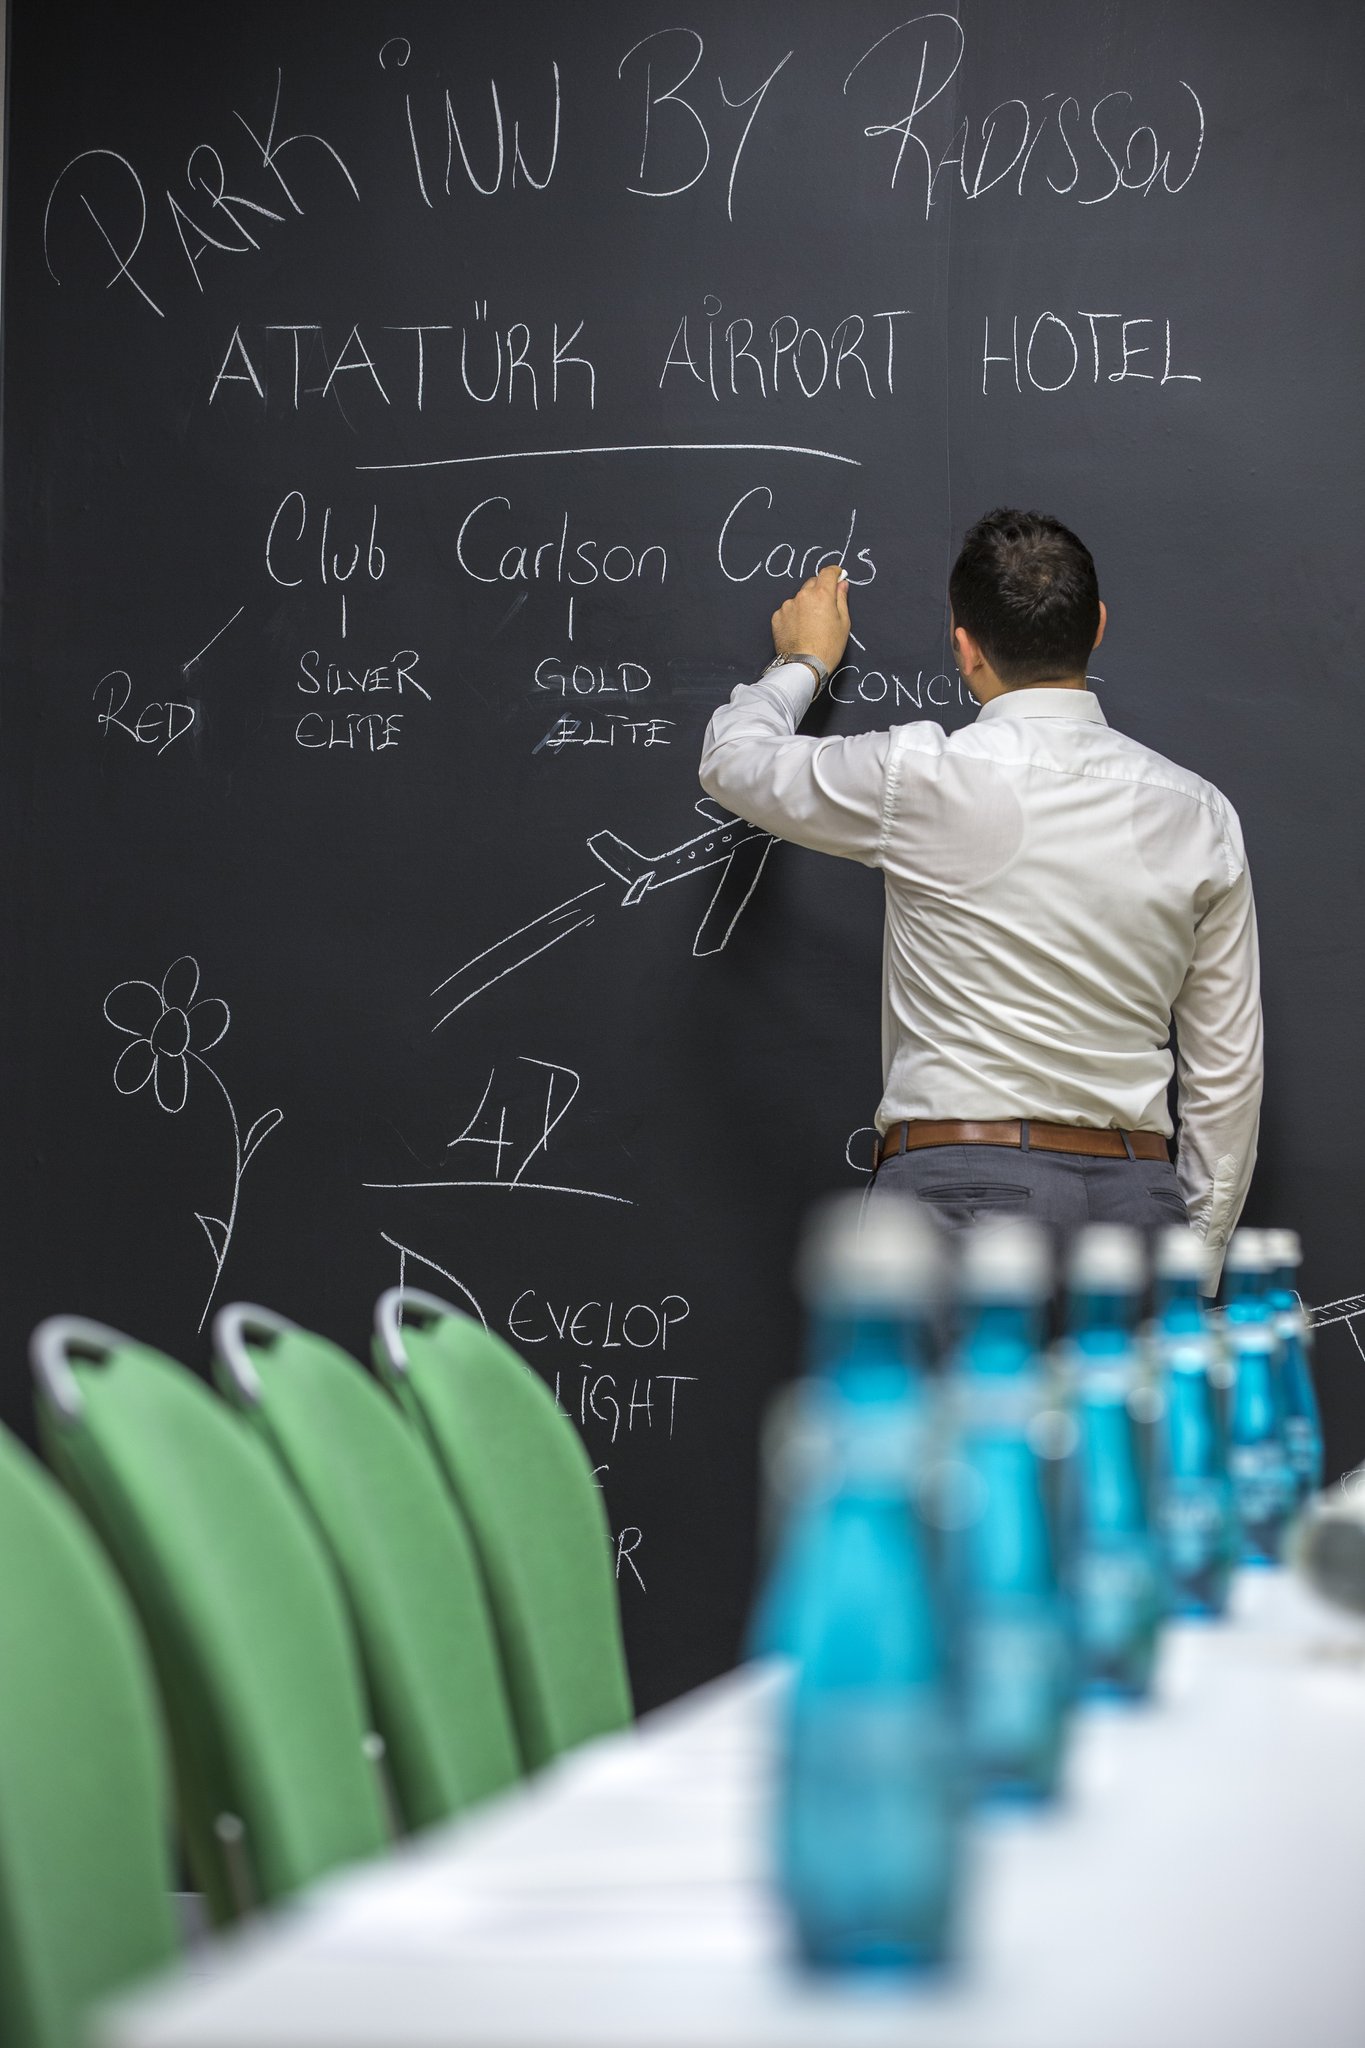 PARK iNN BY RADiSSON
ATATÜRK AiRPORT HOTEL
Club Carlson Cards
RED
SiLVER
ELiTE
GOLD
ELiTE
4D
DEVELOP
LiGHT